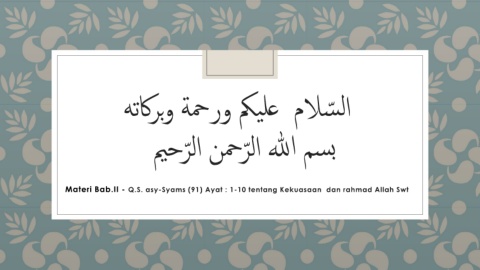 السّلام عليكم ورحمة وبركاته
بسم الله الرّحمن الرّحيم
Materi Bab.II - Q.S. asy-Syams (91) Ayat : 1-10 tentang Kekuasaan dan rahmad Allah Swt